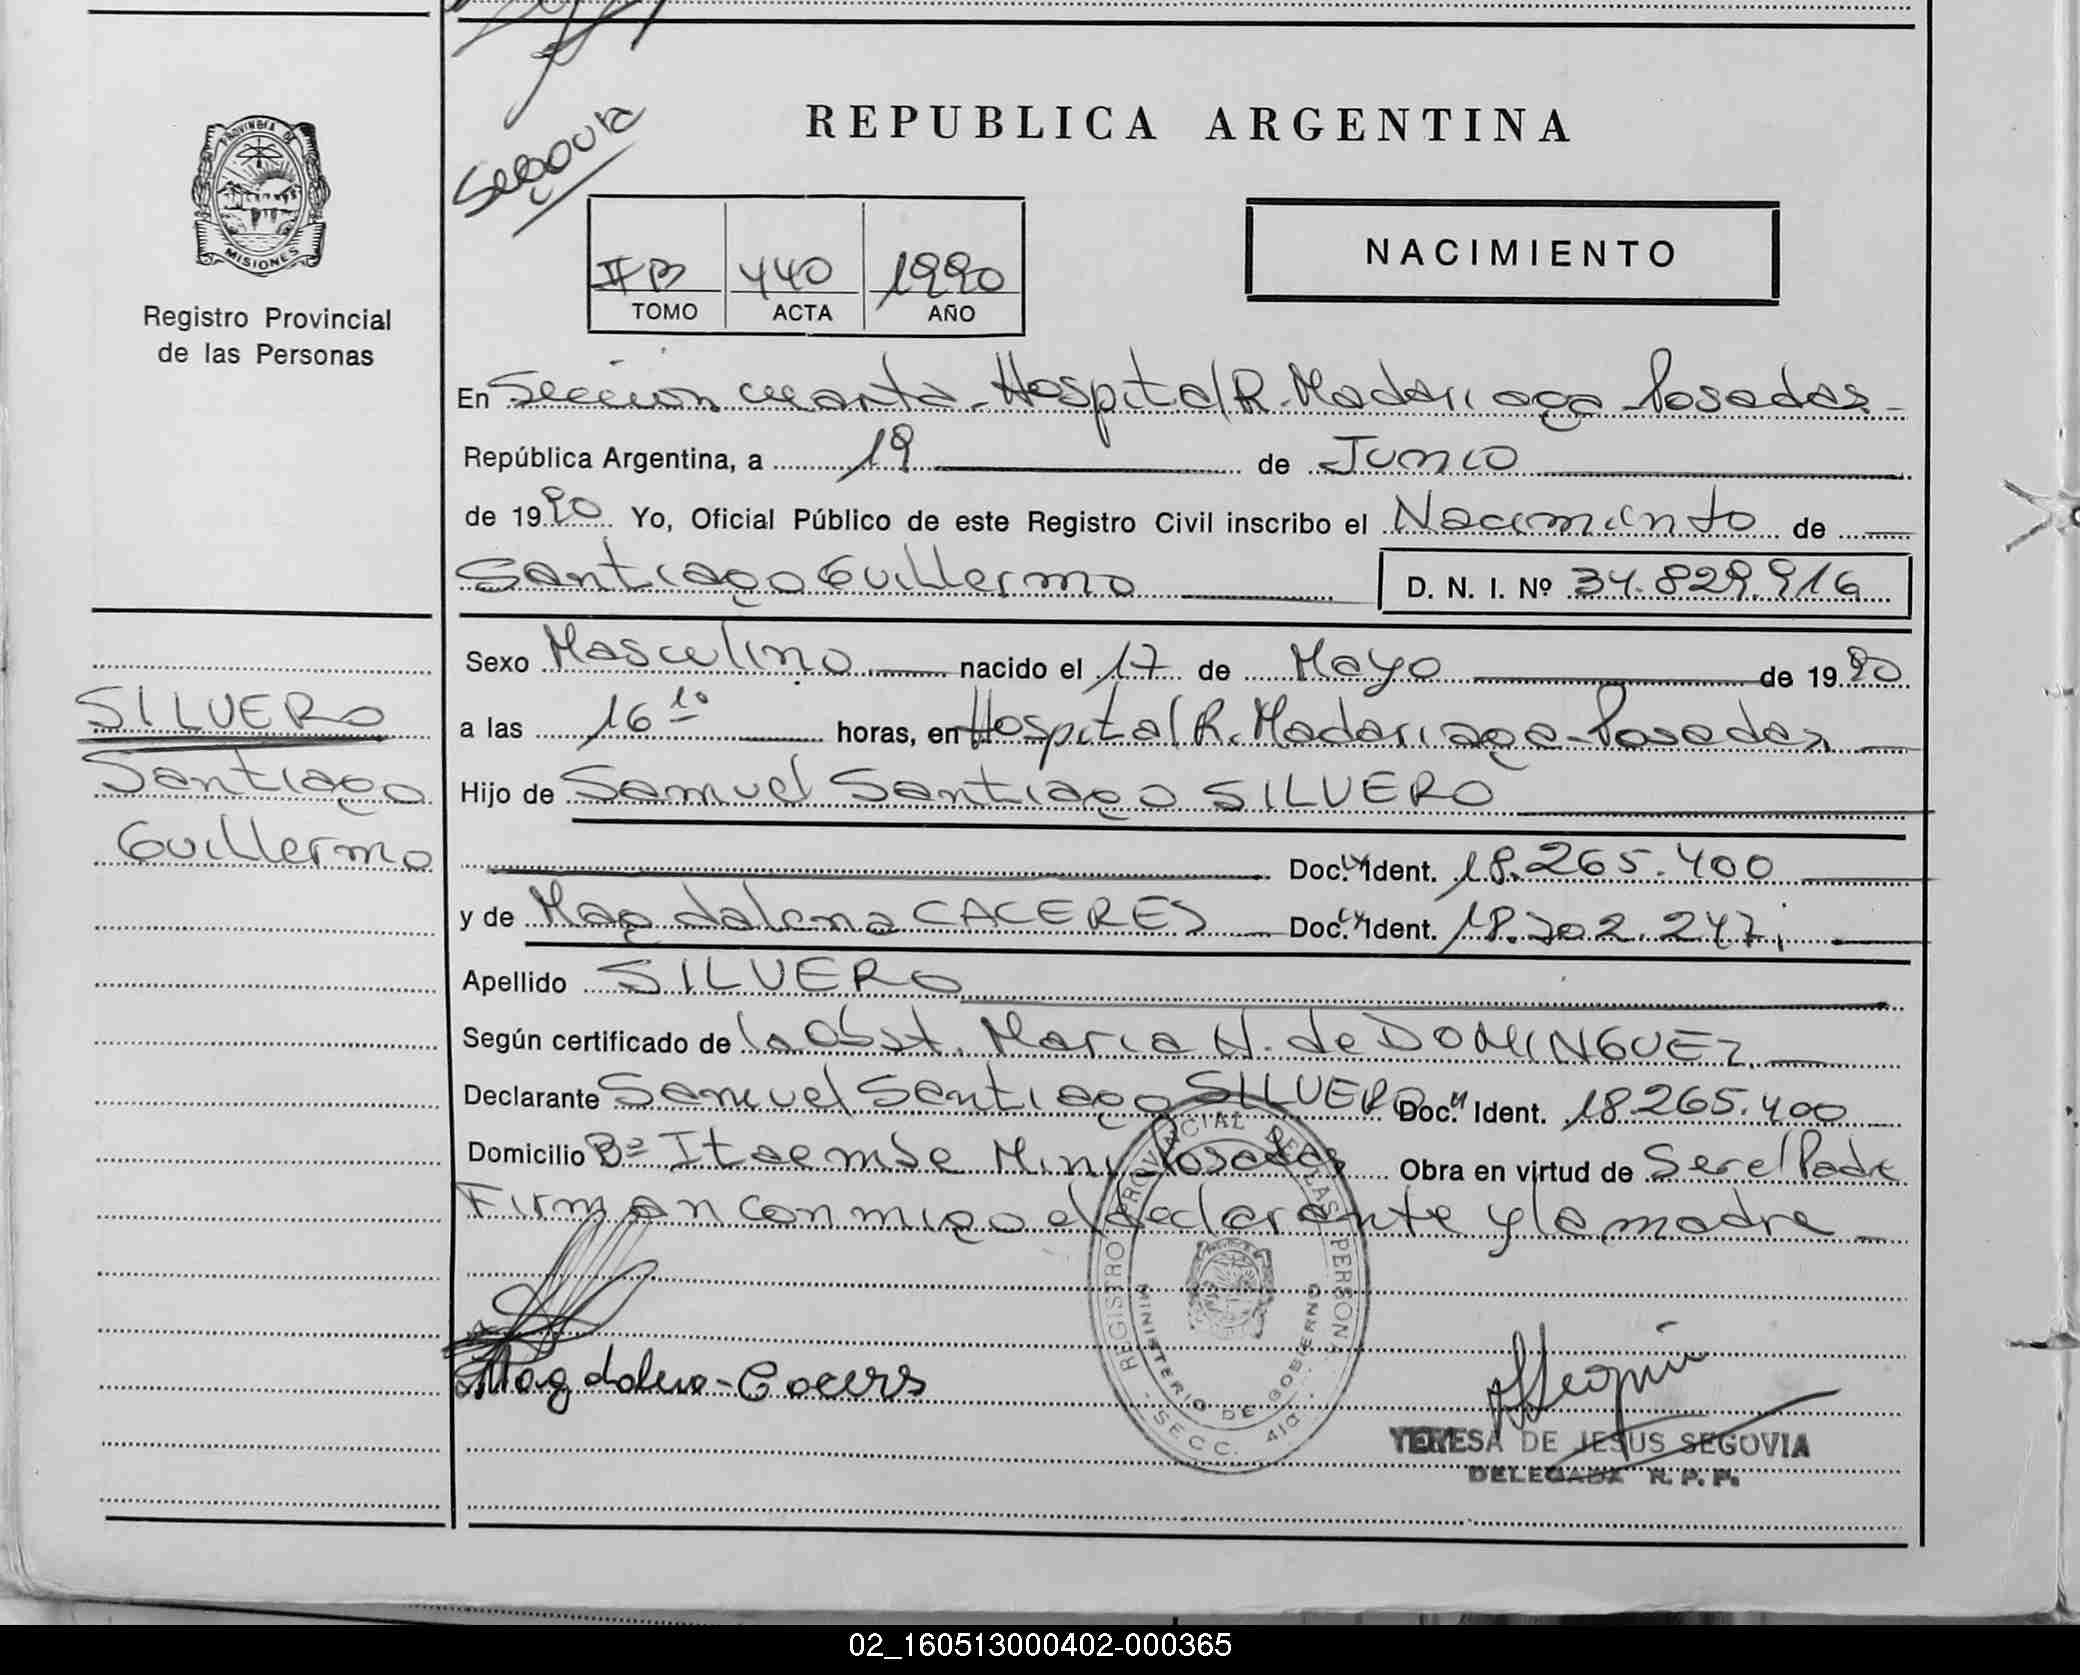 Segovia
REPUBLICA ARGENTINA
PROVINCIA DE
MISIONES
Registro Provincial
de las Personas
II B 440 1990
TOMO ACTA AÑO
NACIMIENTO
En Sección cuarta - Hospital R. Madariaga - Posadas -
República Argentina, a 19 de Junio
de 1990 Yo, Oficial Público de este Registro Civil inscribo el Nacimiento de
Santiago Guillermo D. N. I. Nº 34.829.916
Sexo Masculino nacido el 17 de Mayo de 1990
a las 16 10 horas, en Hospital R. Madariaga - Posadas
Hijo de Samuel Santiago SILVERO
Doc. Ident. 18.265.400
y de Magdalena CACERES Doc. Ident. 18.702.247
Apellido SILVERO
Según certificado de la Obst. Maria N. de DOMINGUEZ
Declarante Samuel Santiago SILVERO Doc. Ident. 18.265.400
Domicilio Bº Itaembe Mini Posadas Obra en virtud de Ser el Padre
Firman conmigo el declarante y la madre
SILVERO
Santiago
Guillermo
Magdalena - Caceres
REGISTRO PROVINCIAL DE LAS PERSONAS
MINISTERIO DE GOBIERNO
- SECC. 4ta -
TERESA DE JESUS SEGOVIA
DELEGADA R. P. P.
02_160513000402-000365